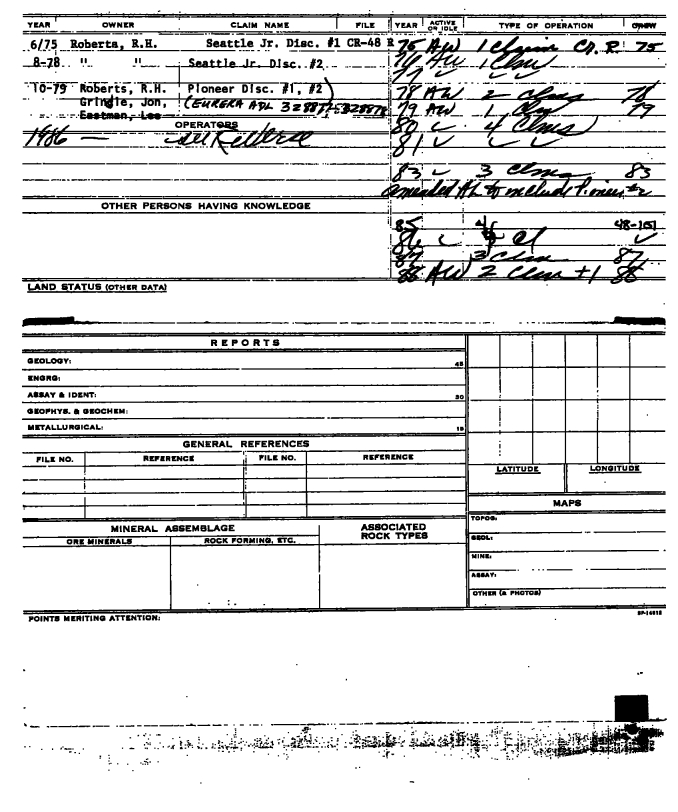 YEAR OWNER CLAIM NAME FILE YEAR ACTIVE OR IDLE TYPE OF OPERATION
6/75 Roberts, R.H. Seattle Jr. Disc. #1 CR-48 75 AW 1 Claim 75
8-78 " " Seattle Jr. Disc. #2 76 AW 1 Clm
77 ✓ ✓ ✓
10-79 Roberts, R.H. Pioneer Disc. #1, #2 78 AW 2 Clms 78
Gringle, Jon, (EUREKA ADL 79 AW 1 Clm 79
Eastman, Lee 80 ✓ 4 Clms
OPERATORS
1986 — See Reverse 81 ✓ ✓ ✓
83 ✓ 3 Clms 83
amended AL to include Pioneer #2
OTHER PERSONS HAVING KNOWLEDGE
85 48-151
86 ✓ Cl ✓
87 3 Clm 87
88 AW 2 Clm +1 88
LAND STATUS (OTHER DATA)
REPORTS
GEOLOGY: 45
ENGRG:
ASSAY & IDENT: 30
GEOPHYS. & GEOCHEM:
METALLURGICAL: 15
GENERAL REFERENCES
FILE NO. REFERENCE FILE NO. REFERENCE
LATITUDE LONGITUDE
MAPS
MINERAL ASSEMBLAGE ASSOCIATED ROCK TYPES
ORE MINERALS ROCK FORMING, ETC.
TOPOG:
GEOL:
MINE:
ASSAY:
OTHER (& PHOTOS)
POINTS MERITING ATTENTION: